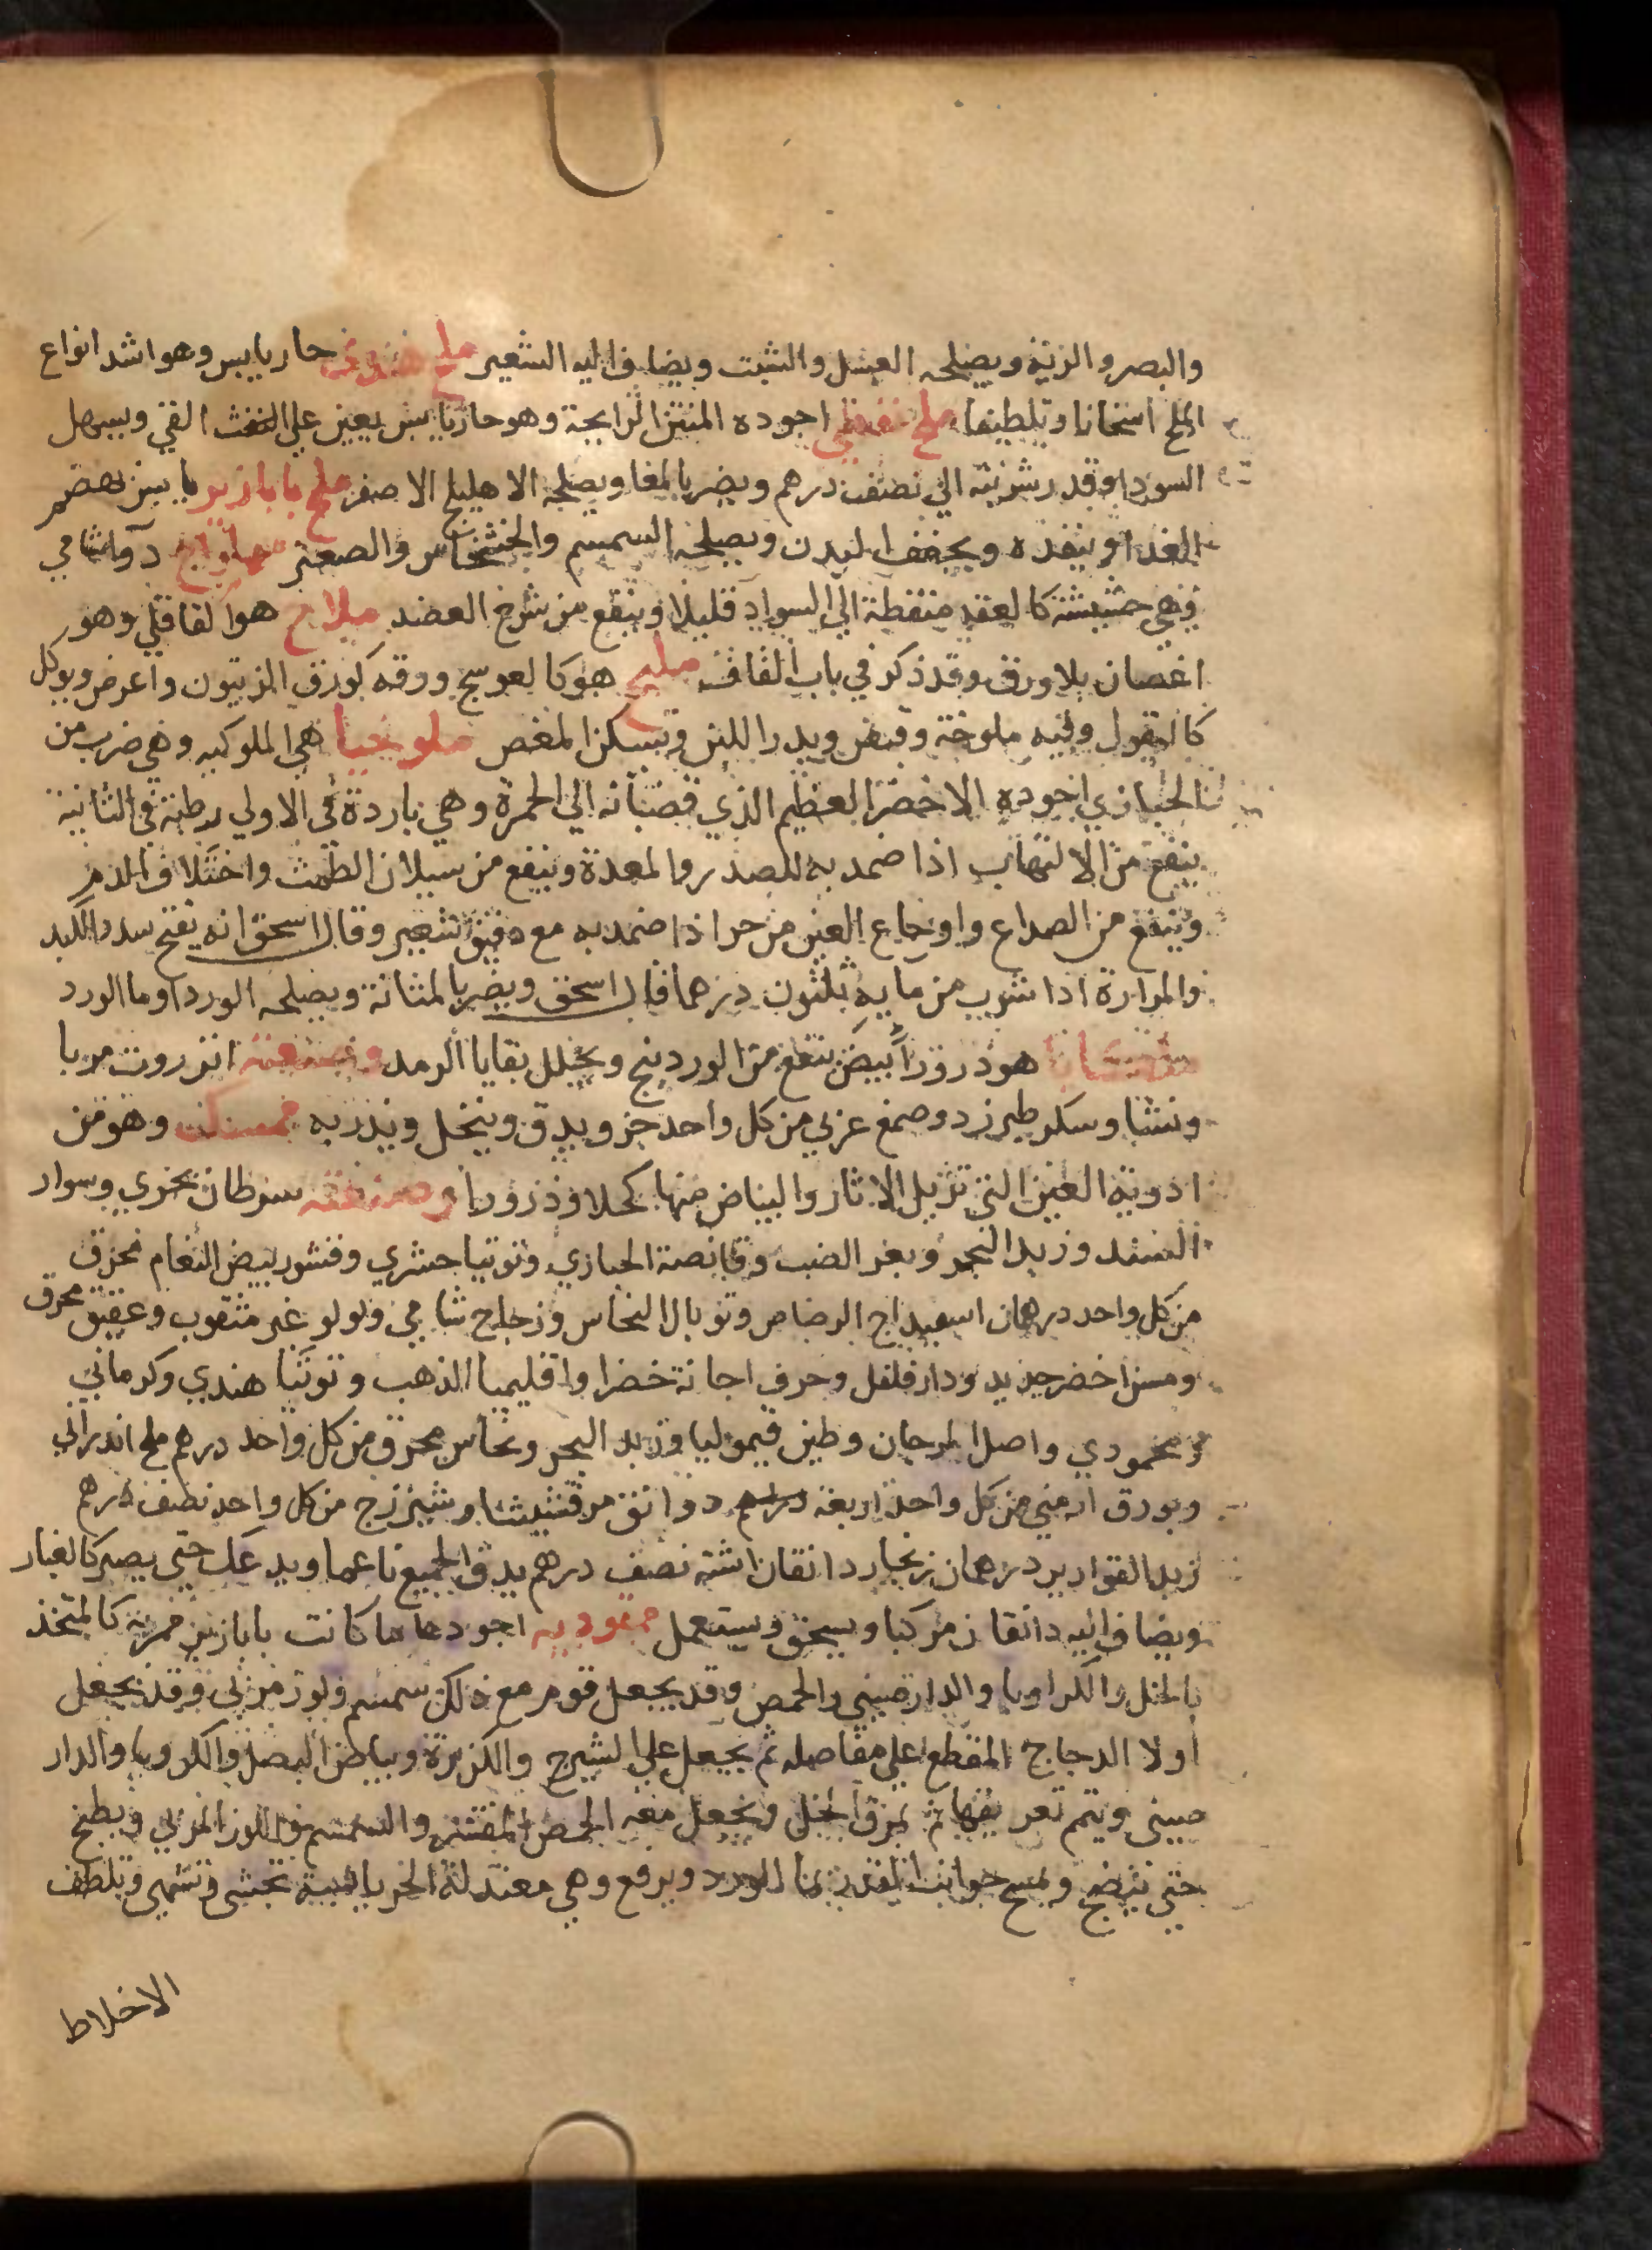 والبصر والرئة ويصلحه العسل والشبت ويضاف اليه الشعير ملح حار يابس وهو اشد انواع
الملح اسخانا وتلطيفا ملح نفطي اجوده المنتن الرايحة وهو حار يابس يعين علي القي ويسهل
السودا وقدر شربته الي نصف درهم ويضر بالمعا ويصلحه الاهليلج الاصفر ملح يابس يهضم
الغدا وينفذه ويجفف البدن ويصلحه السمسم والخشخاش والصعتر دوا شامي
وهي حشيشة كالعقد منقطة الي السواد قليلا وينفع من شرخ العضد ملاح هو القاقلي وهو
اغصان بلا ورق وقد ذكر في باب القاف مليح هو كالعوسج وورقه كورق الزيتون واعرض ويوكل
كالبقول وفيه ملوحة وقبض ويدر اللبن ويسكن المغص ملوخيا هي الملوكيه وهي ضرب من
الخبازي اجوده الاخضر العظيم الذي قضبانه الي الحمرة وهي باردة في الاولي رطبة في الثانية
ينفع من الالتهاب اذا ضمد به للصدر والمعدة وينفع من سيلان الطمث واختلاف الدم
وينفع من الصداع واوجاع العين من حر اذا ضمد به مع دقيق شعير وقال اسحق انه يفتح سدد الكبد
والمرارة اذا شرب من مايه ثلثون درهما قال اسحق ويضر بالمثانة ويصلحه الورد او ما الورد
هو ذرور ابيض ينفع من الوردينج ويحلل بقايا الرمد وصنعته انزروت مربا
ونشا وسكر طبرزد وصمغ عربي من كل واحد جز ويدق وينخل ويذر به وهو من
ادوية العين التي تزيل الاثار والبياض منها كحلا وذرورا وصنعته سرطان بحري وسوار
السند وزبد البحر وبعر الضب وقانصة الحبازي وتوتيا حشري وقشور بيض النعام محرق
من كل واحد درهمان اسبيداج الرصاص وتوبال النحاس وزجاج شامي ولولو غير مثقوب وعقيق محرق
ومسن اخضر جديد ودار فلفل وحرف اجانة خضرا واقليميا الذهب وتوتيا هندي وكرماني
ومحمودي واصل المرجان وطين قيموليا وزبد البحر ونحاس محرق من كل واحد درهم ملح اندراني
وبورق ارمني من كل واحد اربعة دوانق مرقشيشا وشيزرج من كل واحد نصف درهم
زبد القوارير درهمان زنجار دانقان اشنه نصف درهم يدق الجميع ناعما ويدعك حتي يصير كالغبار
ويضاف اليه دانقان ويسحق ويستعمل ممقوديه اجودها ما كانت كالمتخذ
بالخل والكراويا والدارصيني والحمص وقد يجعل قوم مع ذلك سمسم ولوز مربي وقد يجعل
اولا الدجاج المقطع علي مفاصله ثم يجعل علي الشيرج والكزبرة وبياض البصل والكرويا والدار
صيني ويتم تعريقها ثم بمرق الخل ويجعل معه الحمص المقشر والسمسم واللوز المربي ويطبخ
حتي تنضج ويمسح جوانب القدر بما الورد ويرفع وهي معتدلة تحشي وتشهي وتلطف
الاخلاط